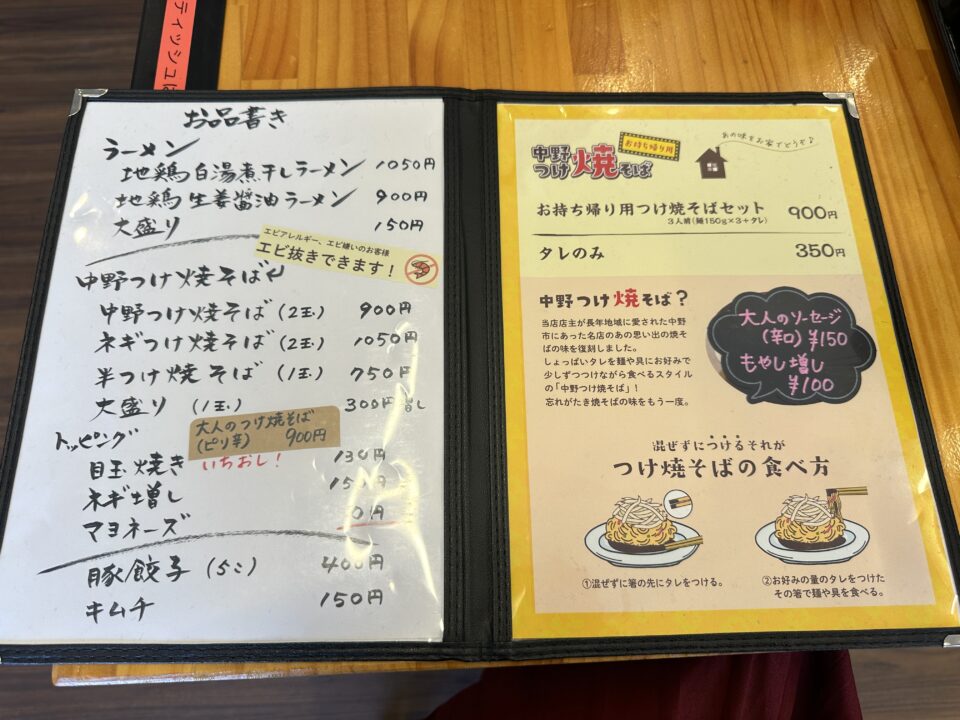 ティッシュは
お品書き
ラーメン
地鶏白湯煮干しラーメン 1050円
地鶏生姜醤油ラーメン 900円
大盛り 150円
エビアレルギー、エビ嫌いのお客様
エビ抜きできます！
中野つけ焼そば
中野つけ焼そば(2玉) 900円
ネギつけ焼そば(2玉) 1050円
半つけ焼そば(1玉) 750円
大盛り (1玉) 300円増し
大人のつけ焼そば
(ピリ辛) 900円
いちおし!
トッピング
目玉焼き 130円
ネギ増し
マヨネーズ
豚餃子(5こ) 400円
キムチ 150円
お持ち帰り用
中野
つけ焼そば
あの味をお家でどうぞ♪
お持ち帰り用つけ焼そばセット 900円
3人前(麺150g×3+タレ)
タレのみ 350円
中野つけ焼そば？
当店店主が長年地域に愛された中野
市にあった名店のあの思い出の焼そ
ばの味を復刻しました。
しょっぱいタレを麺や具にお好みで
少しずつつけながら食べるスタイル
の「中野つけ焼そば」！
忘れがたき焼そばの味をもう一度。
大人のソーセージ
(辛口) ¥150
もやし増し
¥100
混ぜずにつけるそれが
つけ焼そばの食べ方
①混ぜずに箸の先にタレをつける。
②お好みの量のタレをつけた
その箸で麺や具を食べる。